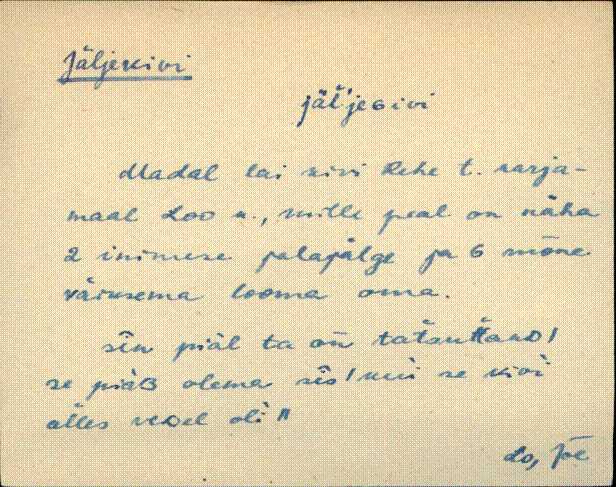 Jäljekivi
jäl'jeGivi
Madal lai kivi Rehe t. karja-
maal Loo k., mille peal on näha
2 inimese jalajälge ja 6 mõne
väiksema looma oma.
sīn piäl ta on
se piäB olema sīs, kui se kivi
alles veDel oli"
Lo, Jõe